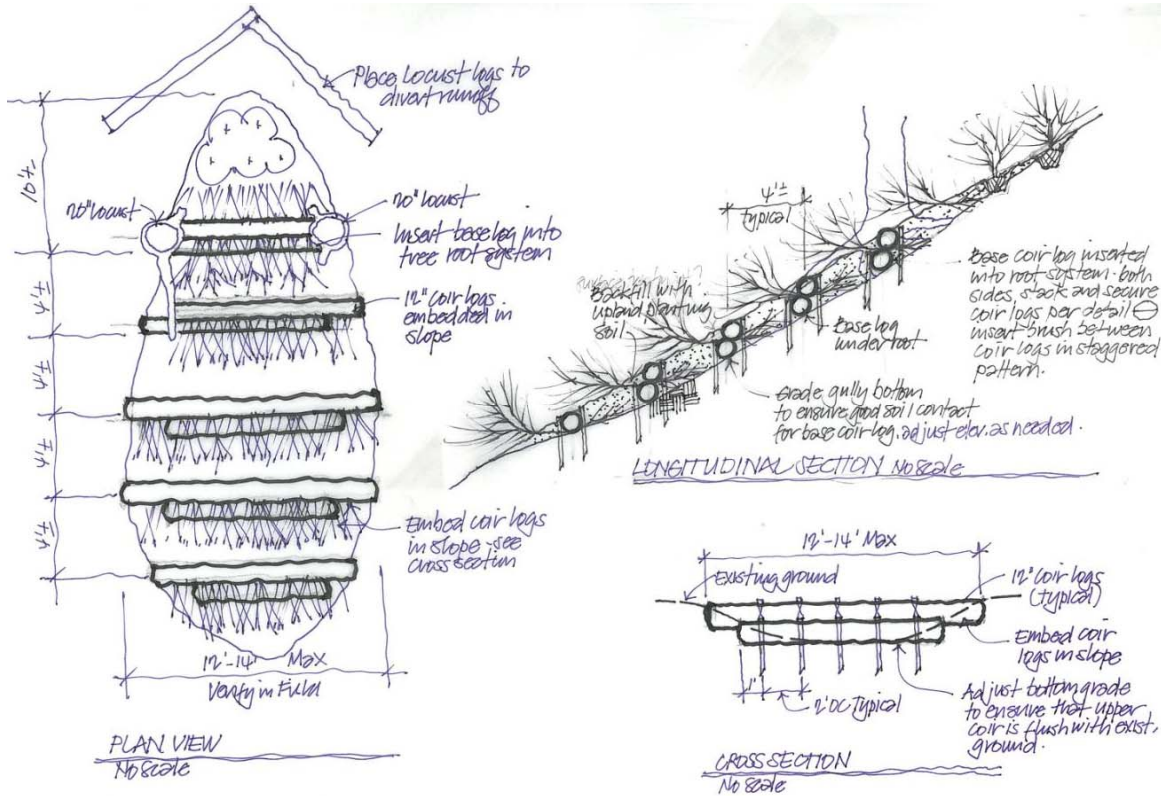 Place Locust logs to
divert runoff
10'±
20" locust
20" locust
Insert base log into
tree root system
4'±
12" Coir logs
embedded in
slope
4'±
4'±
4'±
Embed coir logs
in slope - see
cross section
12'-14' Max
Verify in Field
PLAN VIEW
No scale
4'±
typical
Backfill with
upland planting
soil
Base log
under root
Base coir log inserted
into root system - both
sides, stack and secure
coir logs per detail
insert brush between
coir logs in staggered
pattern.
Grade gully bottom
to ensure good soil contact
for base coir log, adjust elev. as needed.
LONGITUDINAL SECTION No Scale
12'-14' Max
Existing ground
12" Coir logs
(typical)
Embed coir
logs in slope
1'
2' OC Typical
Adjust bottom grade
to ensure that upper
coir is flush with exist.
ground.
CROSS SECTION
No scale